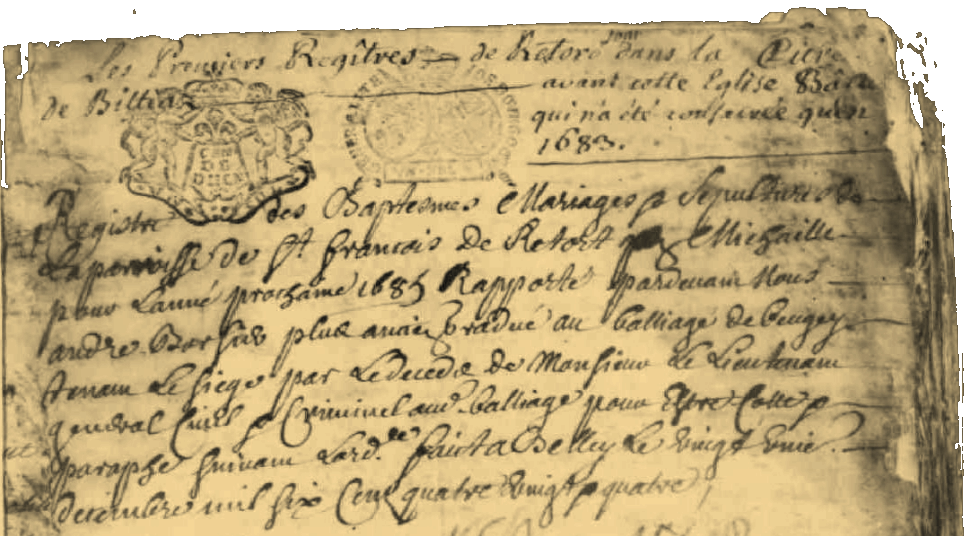 Les Premiers Regîtres de Retord dans la
de Billiat
avant cette Eglise
qui n'a été construite qu'en
1683.
Registre des Baptesmes Mariages & Sepultures de
La parroisse de St francois de Retort Michaille
pour Lanné prochaine 1685 Rapporté pardevant Nous
andre plus ancien Gradué au balliage de beugey
tenant Le siege par Le decede de Monsieur Le Lieutenant
general Civil & Criminel aud. balliage pour Estre Cotté &
paraphé suivant Lord.ce faict a Belley Le vingt
decembre mil six Cent quatre vingt & quatre